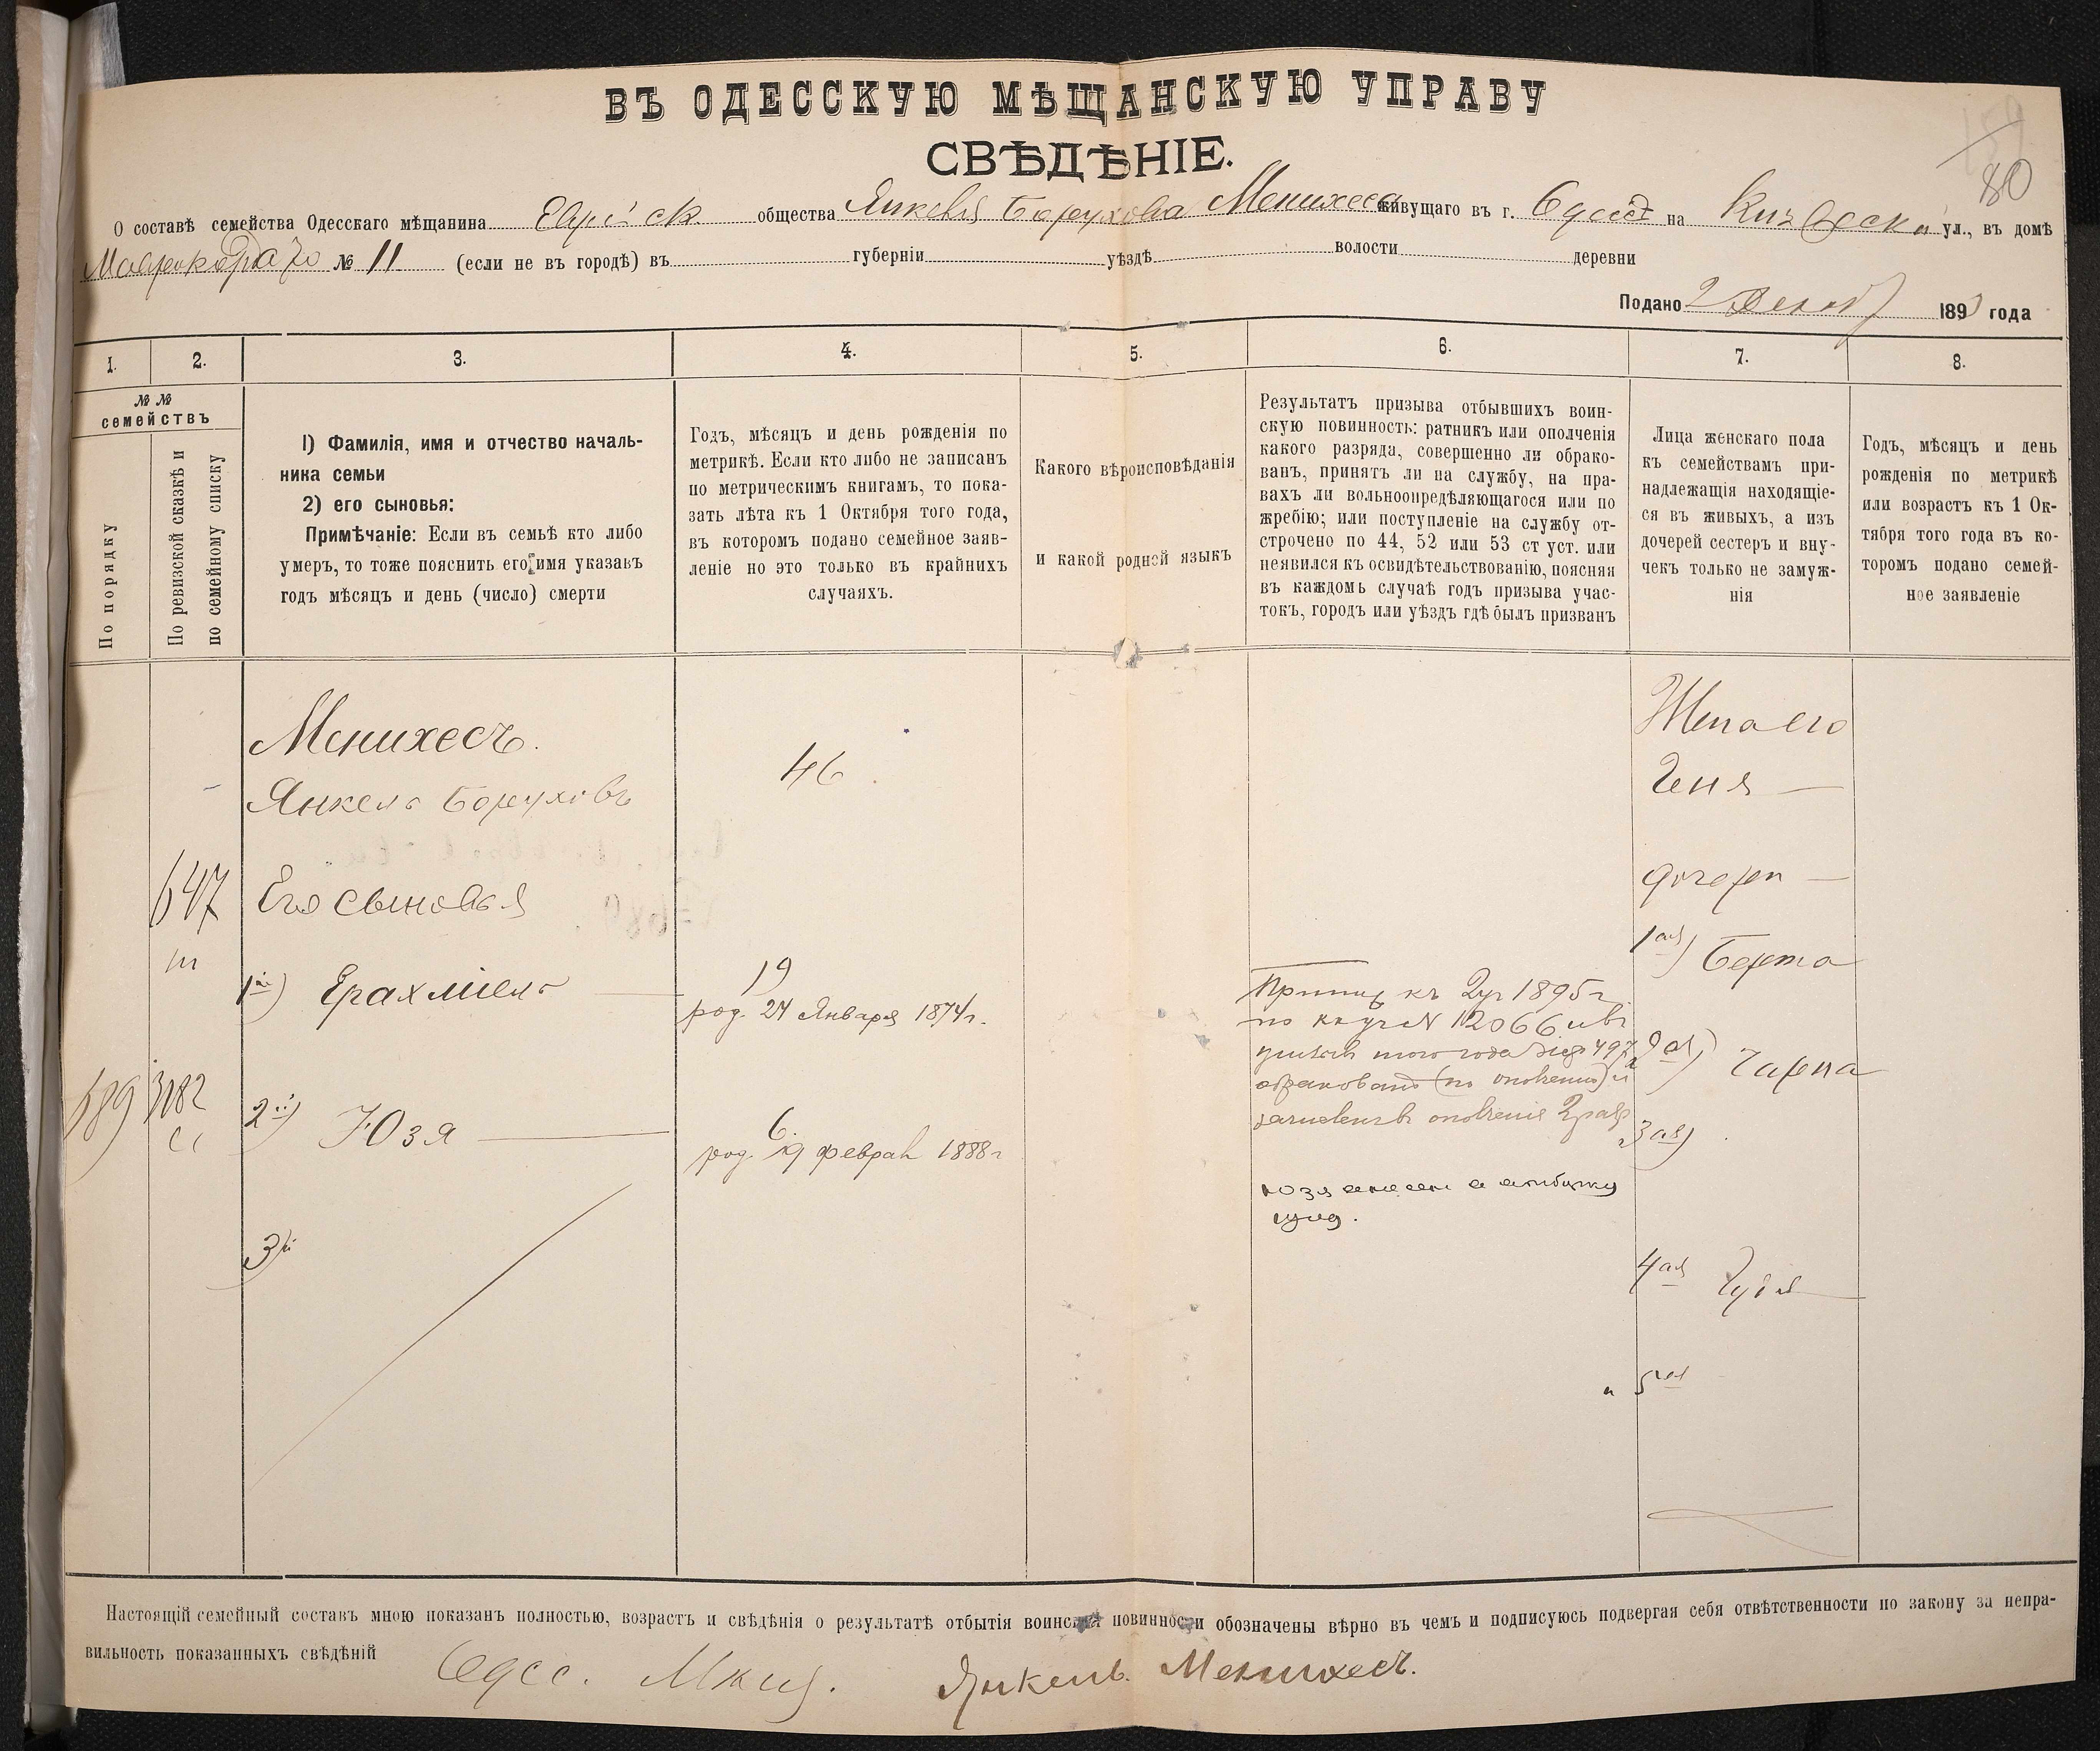 ВЪ ОДЕССКУЮ МѢЩАНСКУЮ УПРАВУ
СВѢДѢНІЕ.
80
О составѣ семейства Одесскаго мѣщанина Еврейск общества Янкеля Борухова Менихеса живущаго въ г. Одессѣ на ул., въ домѣ
Маврокордато № 11 (если не въ городѣ) въ губерніи уѣздѣ волости деревни
Подано 2 1893 года
1. 2. 3. 4. 5. 6. 7. 8.
№№
семействъ
По порядку
По ревизской сказкѣ и
по семейному списку
1) Фамилія, имя и отчество началь-
ника семьи
2) его сыновья:
Примѣчаніе: Если въ семьѣ кто либо
умеръ, то тоже пояснить его имя указавъ
годъ мѣсяцъ и день (число) смерти
Годъ, мѣсяцъ и день рожденія по
метрикѣ. Если кто либо не записанъ
по метрическимъ книгамъ, то пока-
зать лѣта къ 1 Октября того года,
въ которомъ подано семейное заяв-
леніе но это только въ крайнихъ
случаяхъ.
Какого вѣроисповѣданія
и какой родной языкъ
Результатъ призыва отбывшихъ воин-
скую повинность: ратникъ или ополченія
какого разряда, совершенно ли обрако-
ванъ, принятъ ли на службу, на пра-
вахъ ли вольноопредѣляющагося или по
жребію; или поступленіе на службу от-
строчено по 44, 52 или 53 ст уст. или
неявился къ освидѣтельствованію, поясняя
въ каждомъ случаѣ годъ призыва учас-
токъ, городъ или уѣздъ гдѣ былъ призванъ
Лица женскаго пола
къ семействамъ при-
надлежащія находящіе-
ся въ живыхъ, а изъ
дочерей сестеръ и вну-
чекъ только не замуж-
нія
Годъ, мѣсяцъ и день
рожденія по метрикѣ
или возрастъ къ 1 Ок-
тября того года въ ко-
торомъ подано семей-
ное заявленіе
Менихесъ.
Янкель Боруховъ
46
Жена его
Геня —
647
Его сыновья
дочери —
1ая) Берта
1й) Ерахміель —
19
род. 24 Января 1874 г.
къ 1895 г.
по № 12066 и въ
того года 497
обракованъ (по ополченію) и
ополченія
2ая) Чарна
689
3182
2й) Юзя —
6.
род. 19 Феврал 1888 г
3ая)
юзя
3й
4ая
5ая
Настоящій семейный составъ мною показанъ полностью, возрастъ и свѣдѣнія о результатѣ отбытія воинской повинности обозначены вѣрно въ чемъ и подписуюсь подвергая себя отвѣтственности по закону за непра-
вильность показанныхъ свѣдѣній
Одес. Мѣщ. Янкель Менихесъ.